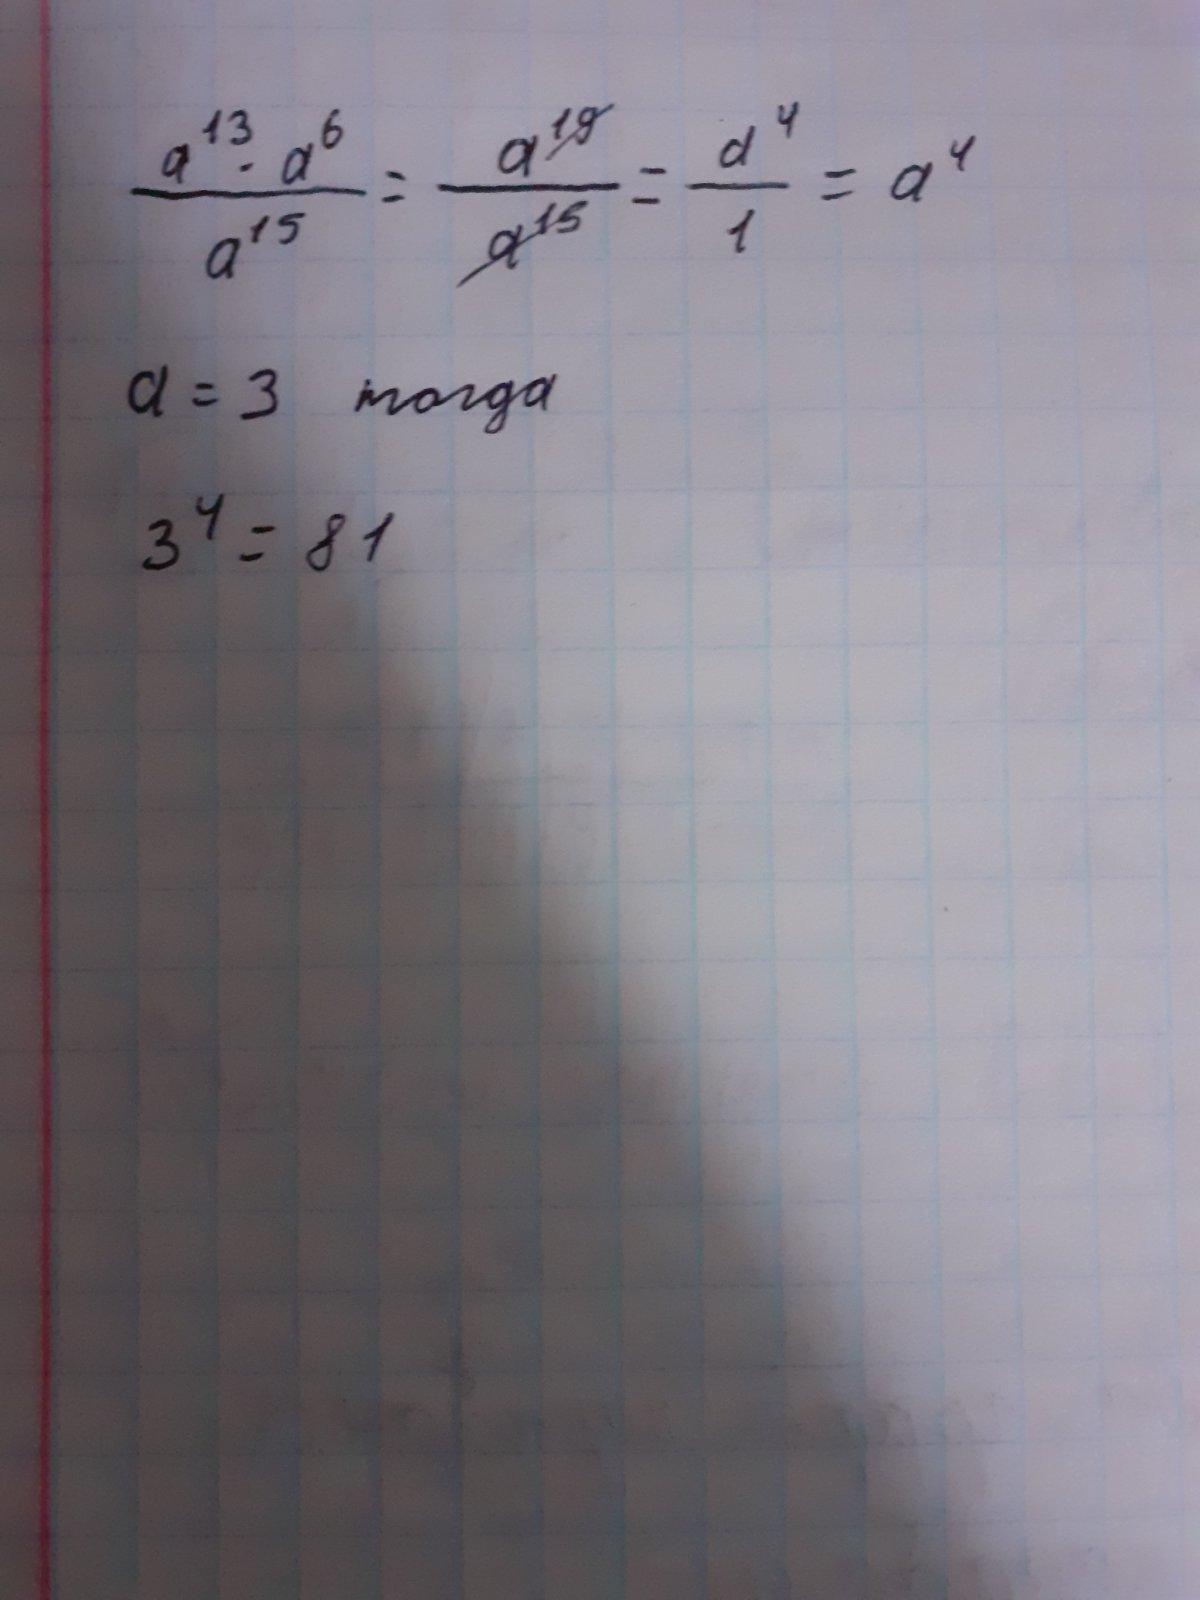 a¹³ · a⁶ / a¹⁵ = a¹⁹ / a¹⁵ = a⁴ / 1 = a⁴
a = 3 тогда
3⁴ = 81